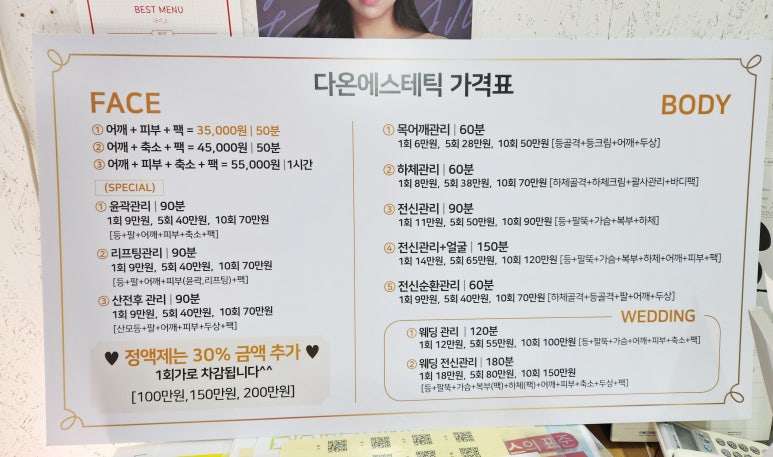 BEST MENU
다온에스테틱 가격표
FACE
① 어깨 + 피부 + 팩 = 35,000원 | 50분
② 어깨 + 축소 + 팩 = 45,000원 | 50분
③ 어깨 + 피부 + 축소 + 팩 = 55,000원 | 1시간
(SPECIAL)
① 윤곽관리 | 90분
1회 9만원, 5회 40만원, 10회 70만원
[등+팔+어깨+피부+축소+팩]
② 리프팅관리 | 90분
1회 9만원, 5회 40만원, 10회 70만원
[등+팔+어깨+피부(윤곽,리프팅)+팩]
③ 산전후 관리 | 90분
1회 9만원, 5회 40만원, 10회 70만원
[산모등+팔+어깨+피부+두상+팩]
♥ 정액제는 30% 금액 추가 ♥
1회가로 차감됩니다^^
[100만원,150만원, 200만원]
BODY
① 목어깨관리 | 60분
1회 6만원, 5회 28만원, 10회 50만원 [등골격+등크림+어깨+두상]
② 하체관리 | 60분
1회 8만원, 5회 38만원, 10회 70만원 [하체골격+하체크림+괄사관리+바디팩]
③ 전신관리 | 90분
1회 11만원, 5회 50만원, 10회 90만원 [등+팔뚝+가슴+복부+하체]
④ 전신관리+얼굴 | 150분
1회 14만원, 5회 65만원, 10회 120만원 [등+팔뚝+가슴+복부+하체+어깨+피부+팩]
⑤ 전신순환관리 | 60분
1회 9만원, 5회 40만원, 10회 70만원 [하체골격+등골격+팔+어깨+두상]
WEDDING
① 웨딩 관리 | 120분
1회 12만원, 5회 55만원, 10회 100만원 [등+팔뚝+가슴+어깨+피부+축소+팩]
② 웨딩 전신관리 | 180분
1회 18만원, 5회 80만원, 10회 150만원
[등+팔뚝+가슴+복부(팩)+하체(팩)+어깨+피부+축소+두상+팩]